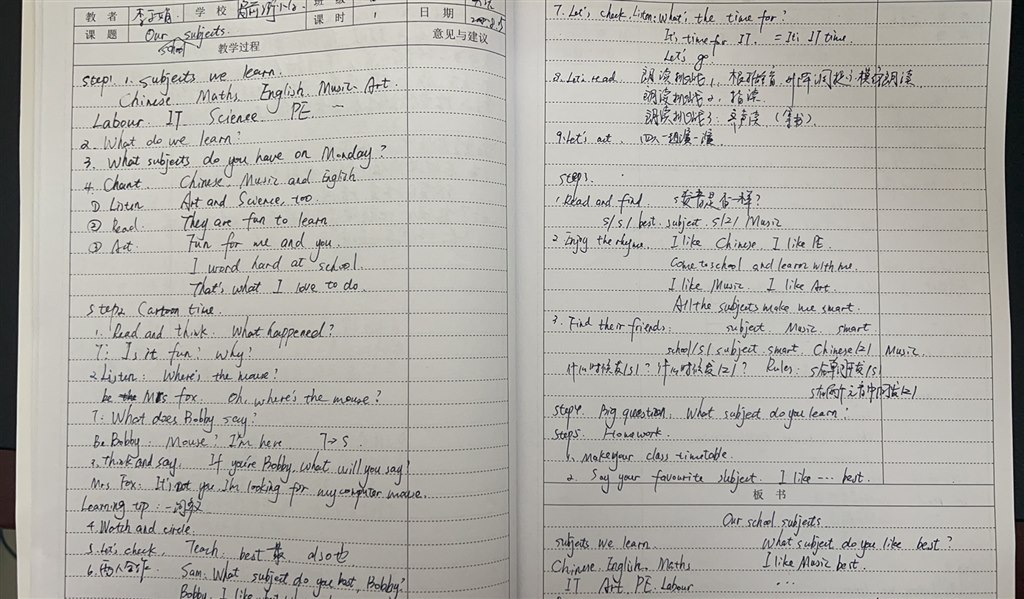 教者 学校
课时 1 日期
课题 Our school subjects. 意见与建议
教学过程
Step1. 1. Subjects we learn.
Chinese Maths English Music Art.
Labour. IT Science PE ...
2. What do we learn?
3. What subjects do you have on Monday?
4. Chant. Chinese, Music and English
① Listen Art and Science, too.
② Read. They are fun to learn.
③ Act. Fun for me and you.
I word hard at school.
That's what I love to do.
Step2 Cartoon time.
1. Read and think. What happened?
T: Is it fun? Why?
2 Listen: Where's the mouse?
be Mrs Fox. Oh, where's the mouse?
T: What does Bobby say?
Be Bobby. Mouse? I'm here. T→S
3. Think and say. If you're Bobby, what will you say?
Mrs Fox: It's not you. I'm looking for my computer mouse.
Learning tip: 一词多义
4. Watch and circle.
5. Let's check. Teach best 最 also 也
6. 四人合作 Sam: What subject do you best, Bobby?
Bobby: I like
7. Let's check. Listen: What's the time for?
It's time for IT. = It's IT time.
Let's go!
8. Let's read. 朗读挑战1. 模仿朗读
朗读挑战2. 指读
朗读挑战3: 齐声读
9. Let's act. 四人一组演一演
Step3.
1. Read and find. s发音是否一样?
s/s/ best subject s/z/ Music
2 Enjoy the rhyme. I like Chinese. I like PE
Come to school and learn with me.
I like Music. I like Art.
All the subjects make me smart.
3. Find their friends: subject Music smart
school/s/ subject smart Chinese/z/ Music.
什么时候发/s/? 什么时候发/z/? Rules: s在单词开头发/s/
s在两个元音中间发/z/
Step4. Big question. What subject do you learn?
Step5. Homework.
1. Make your class timetable.
2. Say your favourite subject. I like ... best.
板书
Our school subjects
subjects we learn What subject do you like best?
Chinese, English, Maths I like Music best.
IT Art PE Labour ...